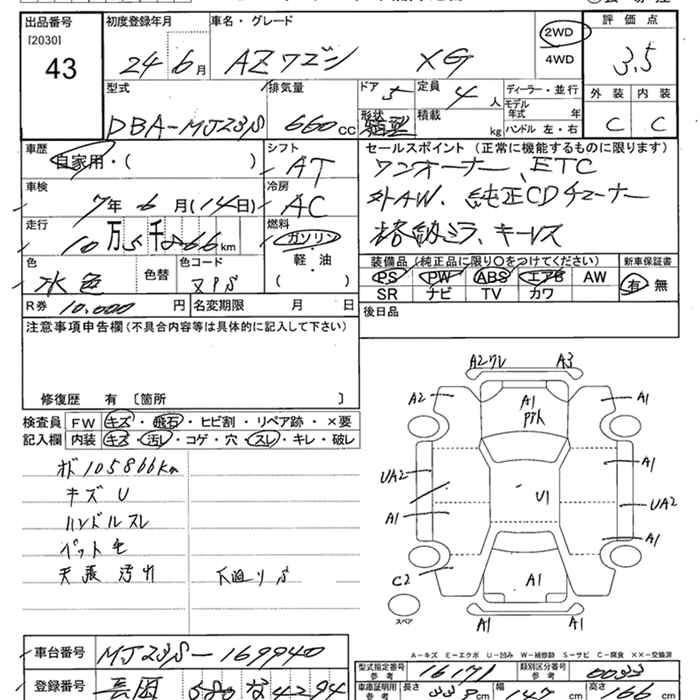 出品番号
[2030]
43
初度登録年月
24年6月
車名・グレード
AZワゴン XG
2WD
4WD
評価点
3.5
外装 内装
C C
型式
DBA-MJ23S
排気量
660cc
ドア 5
形状
定員 4人
積載 kg
ディーラー・並行
モデル年式 年
ハンドル 左・右
車歴
自家用・( )
シフト
AT
車検
7年6月(14日)
冷房
AC
走行
10万5千866km
燃料
ガソリン
軽・油
( )
色
水色
色替
色コード
R券 10.000円
名変期限 月 日
セールスポイント(正常に機能するものに限ります)
ワンオーナー、ETC
外AW、純正CDチューナー
格納ミラ、キーレス
装備品(純正品に限り○をつけてください)
新車保証書
PS PW ABS エアB AW
SR ナビ TV カワ
有 無
後日品
注意事項申告欄(不具合内容等は具体的に記入して下さい)
修復歴 有 〔箇所 〕
検査員記入欄
FW キズ・飛石・ヒビ割・リペア跡・×要
内装 キズ・汚レ・コゲ・穴・スレ・キレ・破レ
オド105866km
キズU
ハンドルスレ
ペット毛
天張汚れ
下廻りS
A2ワレ A3
A2 A1 A1
UA2 U1 A1
A1 UA2
A1
C2 A1
スペア
A1 A1
A-キズ E-エクボ U-凹み W-補修跡 S-サビ C-腐食 XX-交換済
車台番号 MJ23S-169940
型式指定番号 参考 16171
類別区分番号 参考 0033
登録番号 長岡 580 な 4294
車庫証明用 参考
長さ 339cm
幅 147cm
高さ 166cm